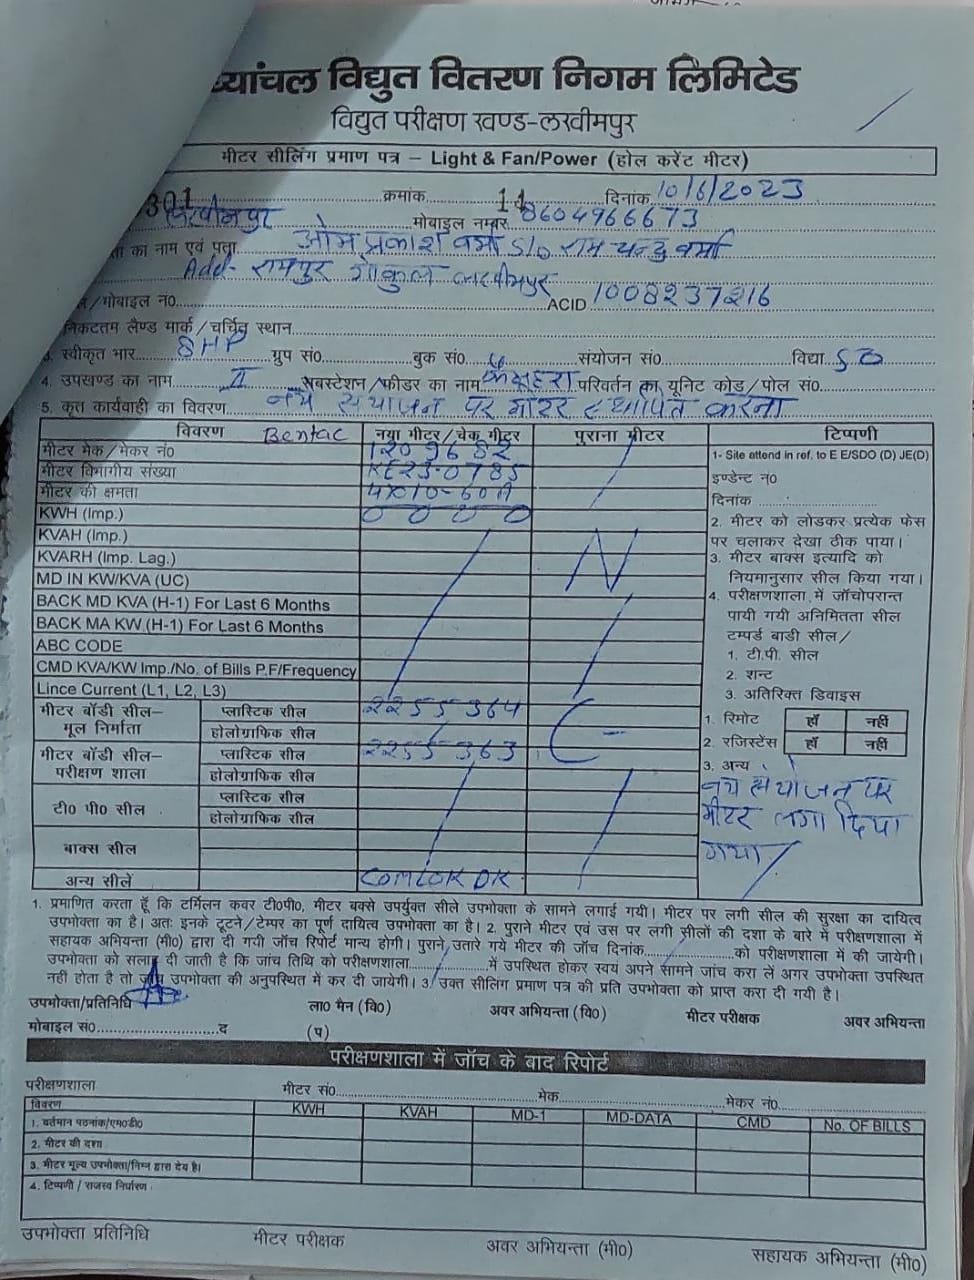 ध्यांचल विद्युत वितरण निगम लिमिटेड
विद्युत परीक्षण खण्ड-लखीमपुर
मीटर सीलिंग प्रमाण पत्र – Light & Fan/Power (होल करेंट मीटर)
301 क्रमांक 11 दिनांक 10/6/2023
लखीमपुर मोबाइल नम्बर 8604966673
ता का नाम एवं पता ओम प्रकाश वर्मा S/o राम चन्द्र वर्मा
Add- रामपुर गोकुल लखीमपुर
/मोबाइल न० ACID 1008237216
निकटतम लैण्ड मार्क/चर्चित स्थान
3. स्वीकृत भार 8HP ग्रुप सं० बुक सं० संयोजन सं० विद्या SO
4. उपखण्ड का नाम II सबस्टेशन/फीडर का नाम परिवर्तन का यूनिट कोड/पोल सं०
5. कृत कार्यवाही का विवरण नये संयोजन पर मीटर स्थापित करना
विवरण Bentac नया मीटर/चेक मीटर पुराना मीटर टिप्पणी
मीटर मेक/मेकर नं० 1209682 1- Site attend in ref. to E E/SDO (D) JE(D)
मीटर विभागीय संख्या KE23-0785 इण्डेन्ट न्०
मीटर की क्षमता 4X10-60A दिनांक
KWH (Imp.) 0 0 0 0 2. मीटर को लोडकर प्रत्येक फेस
KVAH (Imp.) N पर चलाकर देखा ठीक पाया।
KVARH (Imp. Lag.) 3. मीटर बाक्स इत्यादि को
MD IN KW/KVA (UC) नियमानुसार सील किया गया।
BACK MD KVA (H-1) For Last 6 Months 4. परीक्षणशाला में जाँचोपरान्त
BACK MA KW (H-1) For Last 6 Months पायी गयी अनिमितता सील
ABC CODE टम्पर्ड बाडी सील/
CMD KVA/KW Imp./No. of Bills P.F/Frequency 1. टी.पी. सील
2. शन्ट
Lince Current (L1, L2, L3) 3. अतिरिक्त डिवाइस
मीटर बॉडी सील– प्लास्टिक सील 2255364 1. रिमोट हाँ नहीं
मूल निर्माता होलोग्राफिक सील 2. रजिस्टेंस हाँ नहीं
मीटर बॉडी सील– प्लास्टिक सील 2255363 3. अन्य
परीक्षण शाला होलोग्राफिक सील नये संयोजन पर
टी० पी० सील प्लास्टिक सील मीटर लगा दिया
होलोग्राफिक सील गया
बाक्स सील
अन्य सीलें
1. प्रमाणित करता हूँ कि टर्मिलन कवर टी०पी०, मीटर बक्से उपर्युक्त सीले उपभोक्ता के सामने लगाई गयी। मीटर पर लगी सील की सुरक्षा का दायित्व
उपभोक्ता का है। अतः इनके टूटने/टेम्पर का पूर्ण दायित्व उपभोक्ता का है। 2. पुराने मीटर एवं उस पर लगी सीलों की दशा के बारे में परीक्षणशाला में
सहायक अभियन्ता (मी०) द्वारा दी गयी जाँच रिपोर्ट मान्य होगी। पुराने उतारे गये मीटर की जाँच दिनांक को परीक्षणशाला में की जायेगी।
उपभोक्ता को सलाह दी जाती है कि जांच तिथि को परीक्षणशाला में उपस्थित होकर स्वयं अपने सामने जांच करा लें अगर उपभोक्ता उपस्थित
नहीं होता है तो जाँच उपभोक्ता की अनुपस्थिति में कर दी जायेगी। 3. उक्त सीलिंग प्रमाण पत्र की प्रति उपभोक्ता को प्राप्त करा दी गयी है।
उपभोक्ता/प्रतिनिधि ला० मैन (वि०) अवर अभियन्ता (वि०) मीटर परीक्षक अवर अभियन्ता
मोबाइल सं० द (प)
परीक्षणशाला में जाँच के बाद रिपोर्ट
परीक्षणशाला मीटर सं० मेक मेकर नं०
विवरण KWH KVAH MD-1 MD-DATA CMD No. OF BILLS
1. वर्तमान पठनांक/एम०डी०
2. मीटर की दशा
3. मीटर मूल्य उपभोक्ता/निम्न द्वारा देय है।
4. टिप्पणी / राजस्व निर्धारण
उपभोक्ता प्रतिनिधि मीटर परीक्षक अवर अभियन्ता (मी०) सहायक अभियन्ता (मी०)